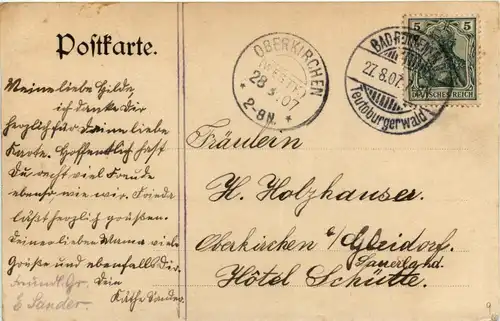 Postkarte.
Meine liebe Hilde,
ich danke Dir
herzlich für Deine liebe
Karte. Hoffentlich hast
Du recht viel Freude
ebenso, wie wir. Frieda
läßt herzlich grüßen.
Deiner lieben Mama viele
Grüße und ebenfalls Dir.
Dein
Käthe Sander
freundl. Gr.
E Sander.
OBERKIRCHEN
(WESTF.)
28.8.07
* 2-8N. *
BAD
27.8.07.
Teutoburgerwald
5 5
DEUTSCHES REICH
Fräulein
H. Holzhauser.
Oberkirchen b/Gleidorf.
Sauerland.
Hôtel Schütte.